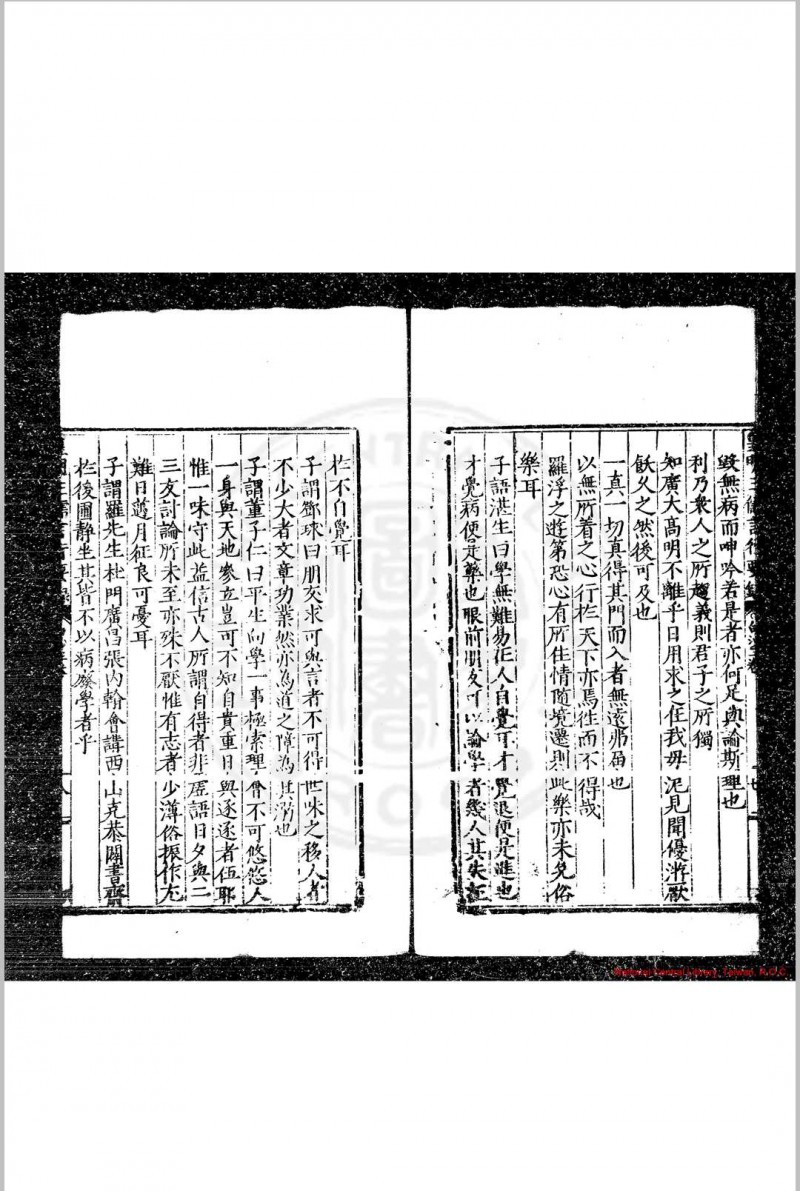 疑無病而呻吟若是者亦何足與論斯理也
利乃衆人之所趨義則君子之所獨
知廣大高明不離乎日用求之在我毋泥見聞優游厭
飫久之然後可及也
一真一切真得其門而入者無遠弗屆也
以無所着之心行於天下亦焉往而不得哉
羅浮之遊第恐心有所住情隨境遷則此樂亦未免俗
樂耳
子語湛生曰學無難易在人自覺可才覺退便是進也
才覺病便是藥也眼前朋友可以論學者幾人其失在
於不自覺耳
子謂鄧球曰朋友求可與言者不可得世味之移人者
不少大者文章功業然亦為道之障為其溺也
子謂董子仁曰平生向學一事極索理會不可悠悠人
一身與天地參立豈可不知自貴重日與逐逐者伍耶
惟一味守此益信古人所謂自得者非虛語日夕與二
三友討論所未至亦殊不厭惟有志者少薄俗振作尤
難日邁月征良可憂耳
子謂羅先生杜門廣昌張內翰會講西山克恭閉書齋
於後圃靜坐其皆不以病廢學者乎
National Central Library, Taiwan, R.O.C.